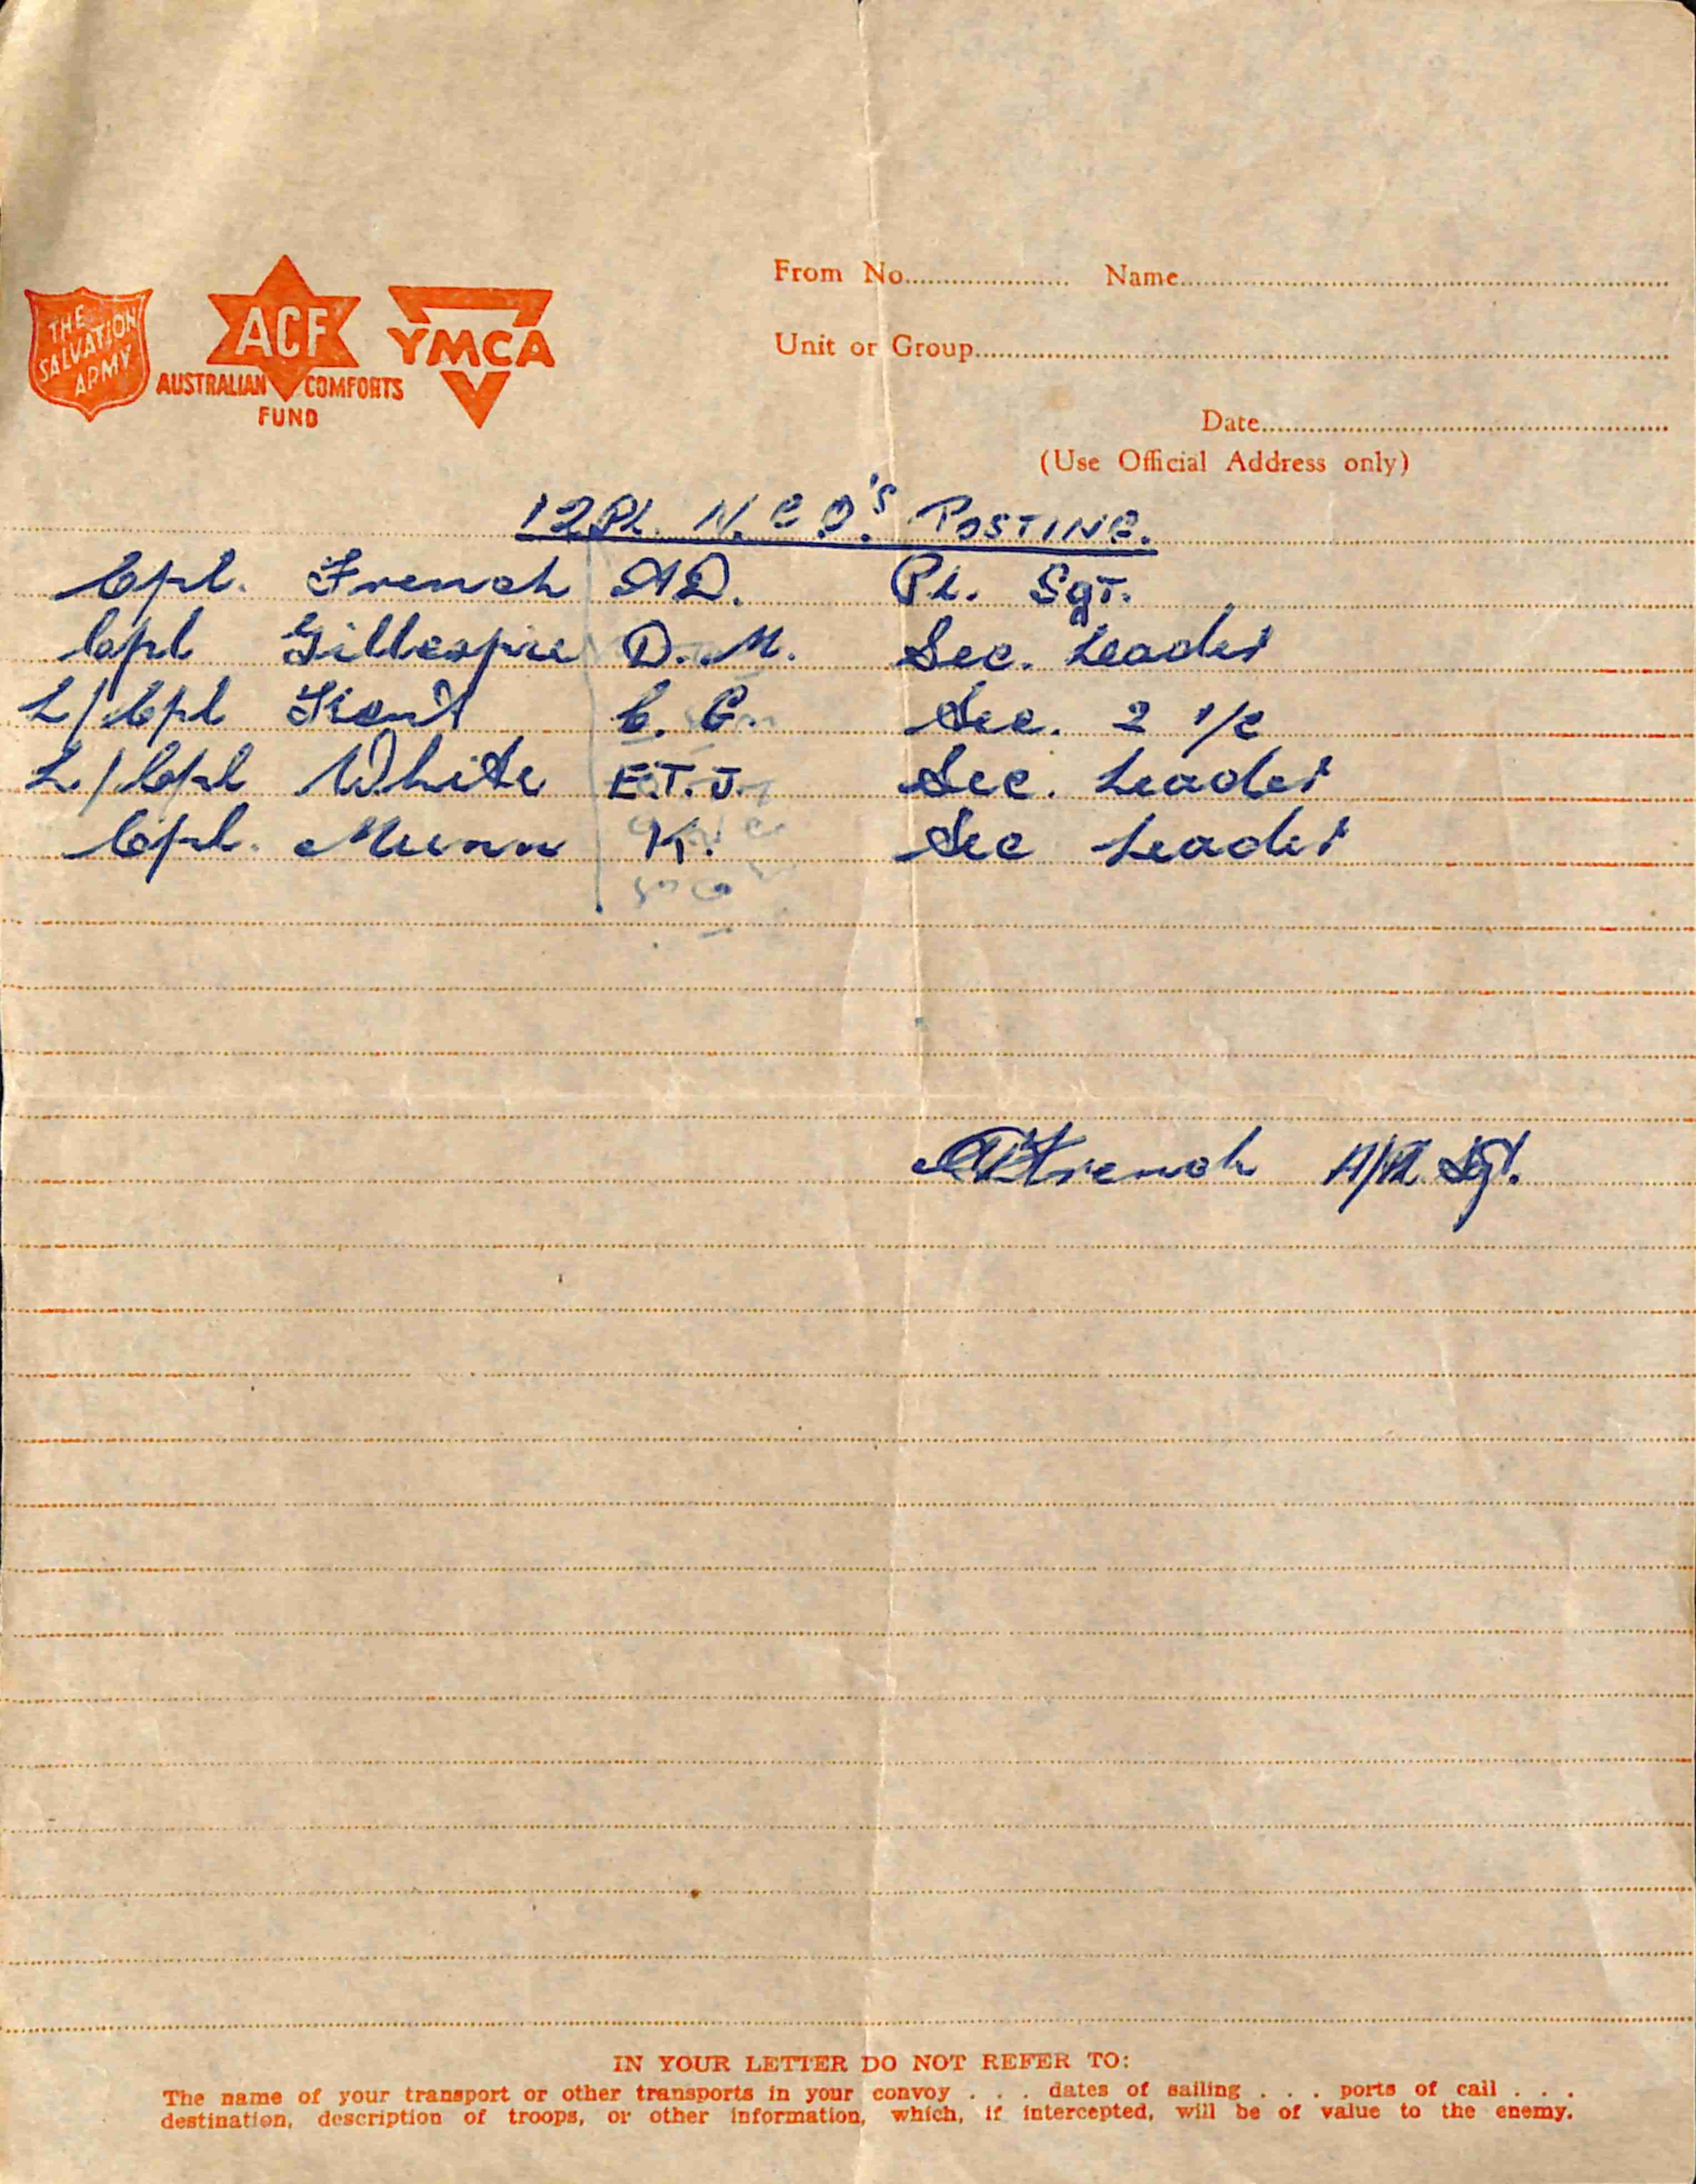 THE SALVATION ARMY
ACF
AUSTRALIAN COMFORTS
FUND
YMCA
From No.................... Name....................
Unit or Group....................
Date....................
(Use Official Address only)
12 Pl. N.C.O.'s POSTING.
Cpl. French A D. Pl. Sgt.
Cpl Gillespie D. M. Sec. Leader
L/Cpl Kent C. G. Sec. 2 I/C
L/Cpl White E.T.J. Sec. Leader
Cpl. Munn K. Sec Leader
French A/Pl. Sgt.
IN YOUR LETTER DO NOT REFER TO:
The name of your transport or other transports in your convoy . . . dates of sailing . . . ports of call . . .
destination, description of troops, or other information, which, if intercepted, will be of value to the enemy.